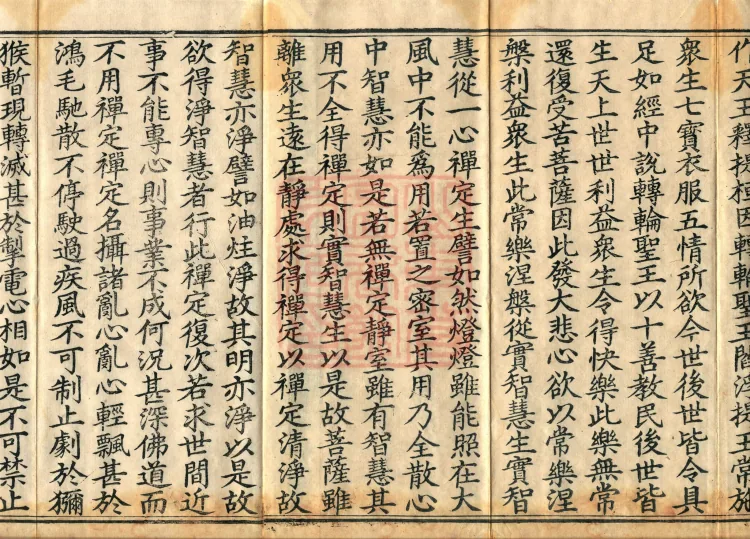 作天王釋提桓因轉輪聖王閻浮提王常施
衆生七寶衣服五情所欲今世後世皆令具
足如經中說轉輪聖王以十善教民後世皆
生天上世世利益衆生令得快樂此樂無常
還復受苦菩薩因此發大悲心欲以常樂涅
槃利益衆生此常樂涅槃從實智慧生實智
慧從一心禪定生譬如然燈燈雖能照在大
風中不能爲用若置之密室其用乃全散心
中智慧亦如是若無禪定靜室雖有智慧其
用不全得禪定則實智慧生以是故菩薩雖
離衆生遠在靜處求得禪定以禪定清淨故
智慧亦淨譬如油炷淨故其明亦淨以是故
欲得淨智慧者行此禪定復次若求世間近
事不能專心則事業不成何況甚深佛道而
不用禪定禪定名攝諸亂心亂心輕飄甚於
鴻毛馳散不停駛過疾風不可制止劇於獼
猴暫現轉滅甚於掣電心相如是不可禁止